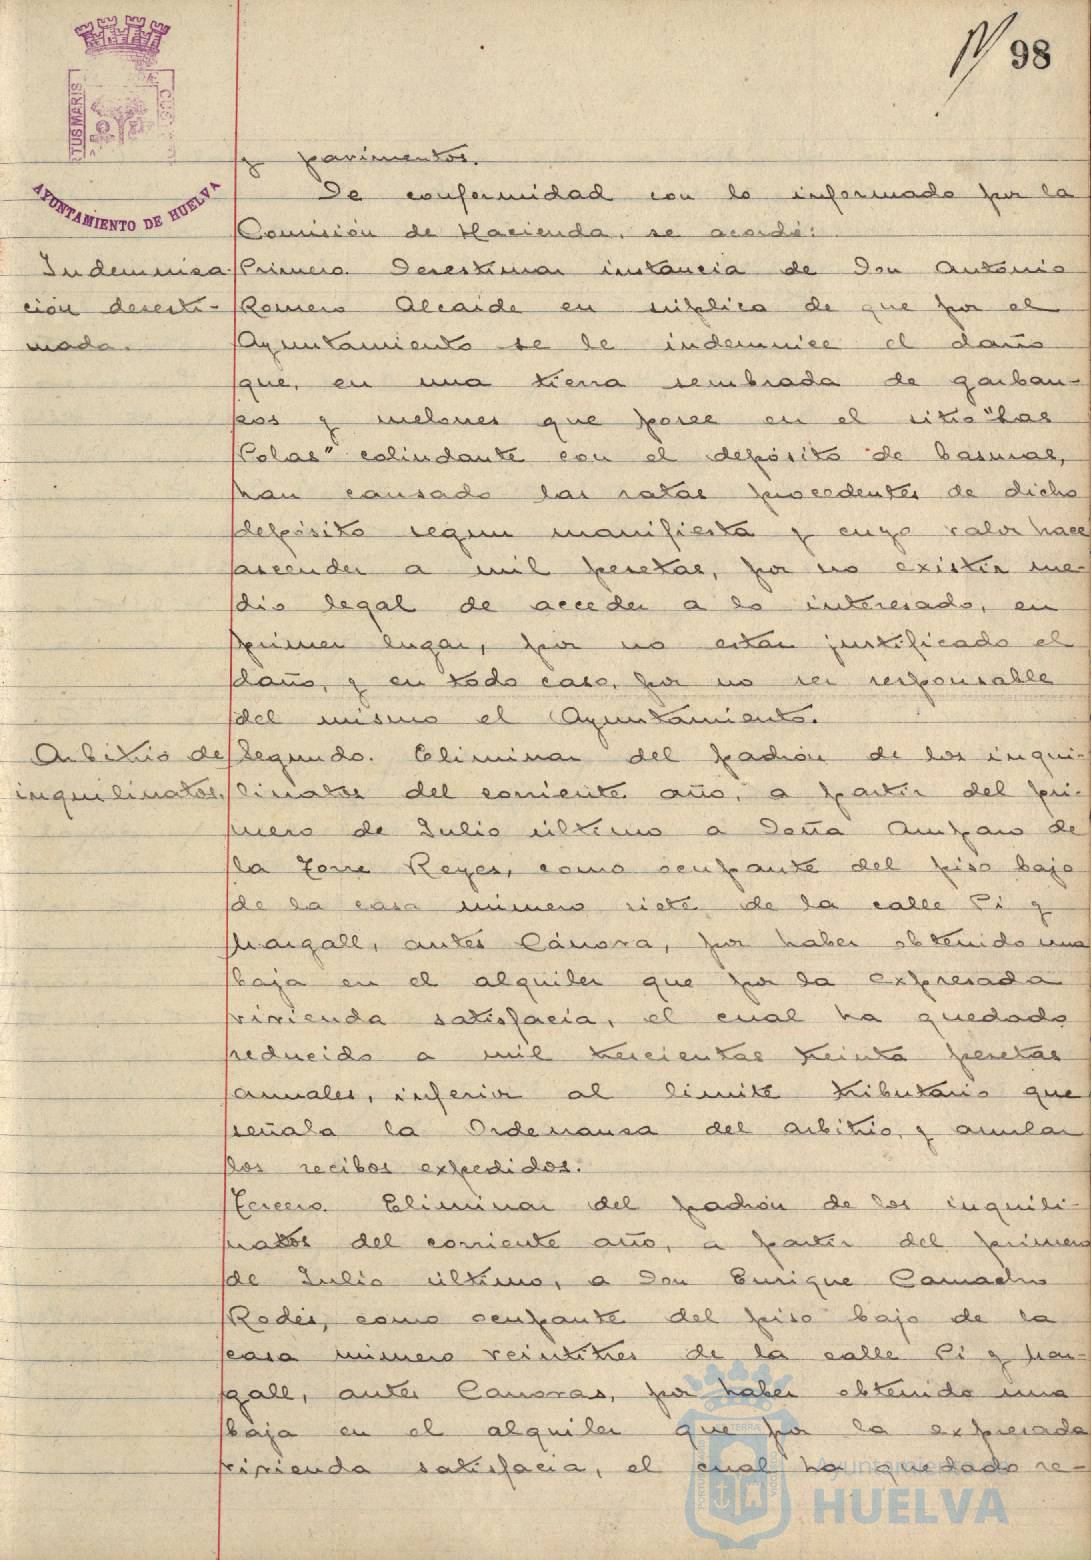 98
TUS MARIS
AYUNTAMIENTO DE HUELVA
y pavimentos.
De conformidad con lo informado por la
Comisión de Hacienda, se acordó:
Indemniza-
ción desesti-
mada.
Primero. Desestimar instancia de Don Antonio
Romero Alcaide en súplica de que por el
Ayuntamiento se le indemnice el daño
que, en una tierra sembrada de garban-
zos y melones que posee en el sitio "Las
Colas" colindante con el depósito de basuras,
han causado las ratas procedentes de dicho
depósito segun manifiesta y cuyo valor hace
ascender a mil pesetas, por no existir me-
dio legal de acceder a lo interesado, en
primer lugar, por no estar justificado el
daño, y en todo caso, por no ser responsable
del mismo el Ayuntamiento.
Arbitrio de
inquilinatos.
Segundo. Eliminar del padrón de los inqui-
linatos del corriente año, a partir del pri-
mero de Julio último a Doña Amparo de
la Torre Reyes, como ocupante del piso bajo
de la casa número siete de la calle Pi y
Margall, antes Cánova, por haber obtenido una
baja en el alquiler que por la expresada
vivienda satisfacia, el cual ha quedado
reducido a mil trescientas treinta pesetas
anuales, inferior al limite tributario que
señala la Ordenansa del arbitrio, y anular
los recibos expedidos.
Tercero. Eliminar del padrón de los inquili-
natos del corriente año, a partir del primero
de Julio último, a Don Enrique Camacho
Rodés, como ocupante del piso bajo de la
casa número veintitres de la calle Pi y Mar-
gall, antes Canovas, por haber obtenido una
baja en el alquiler que por la expresada
vivienda satisfacia, el cual ha quedado re-
Ayuntamiento de
HUELVA